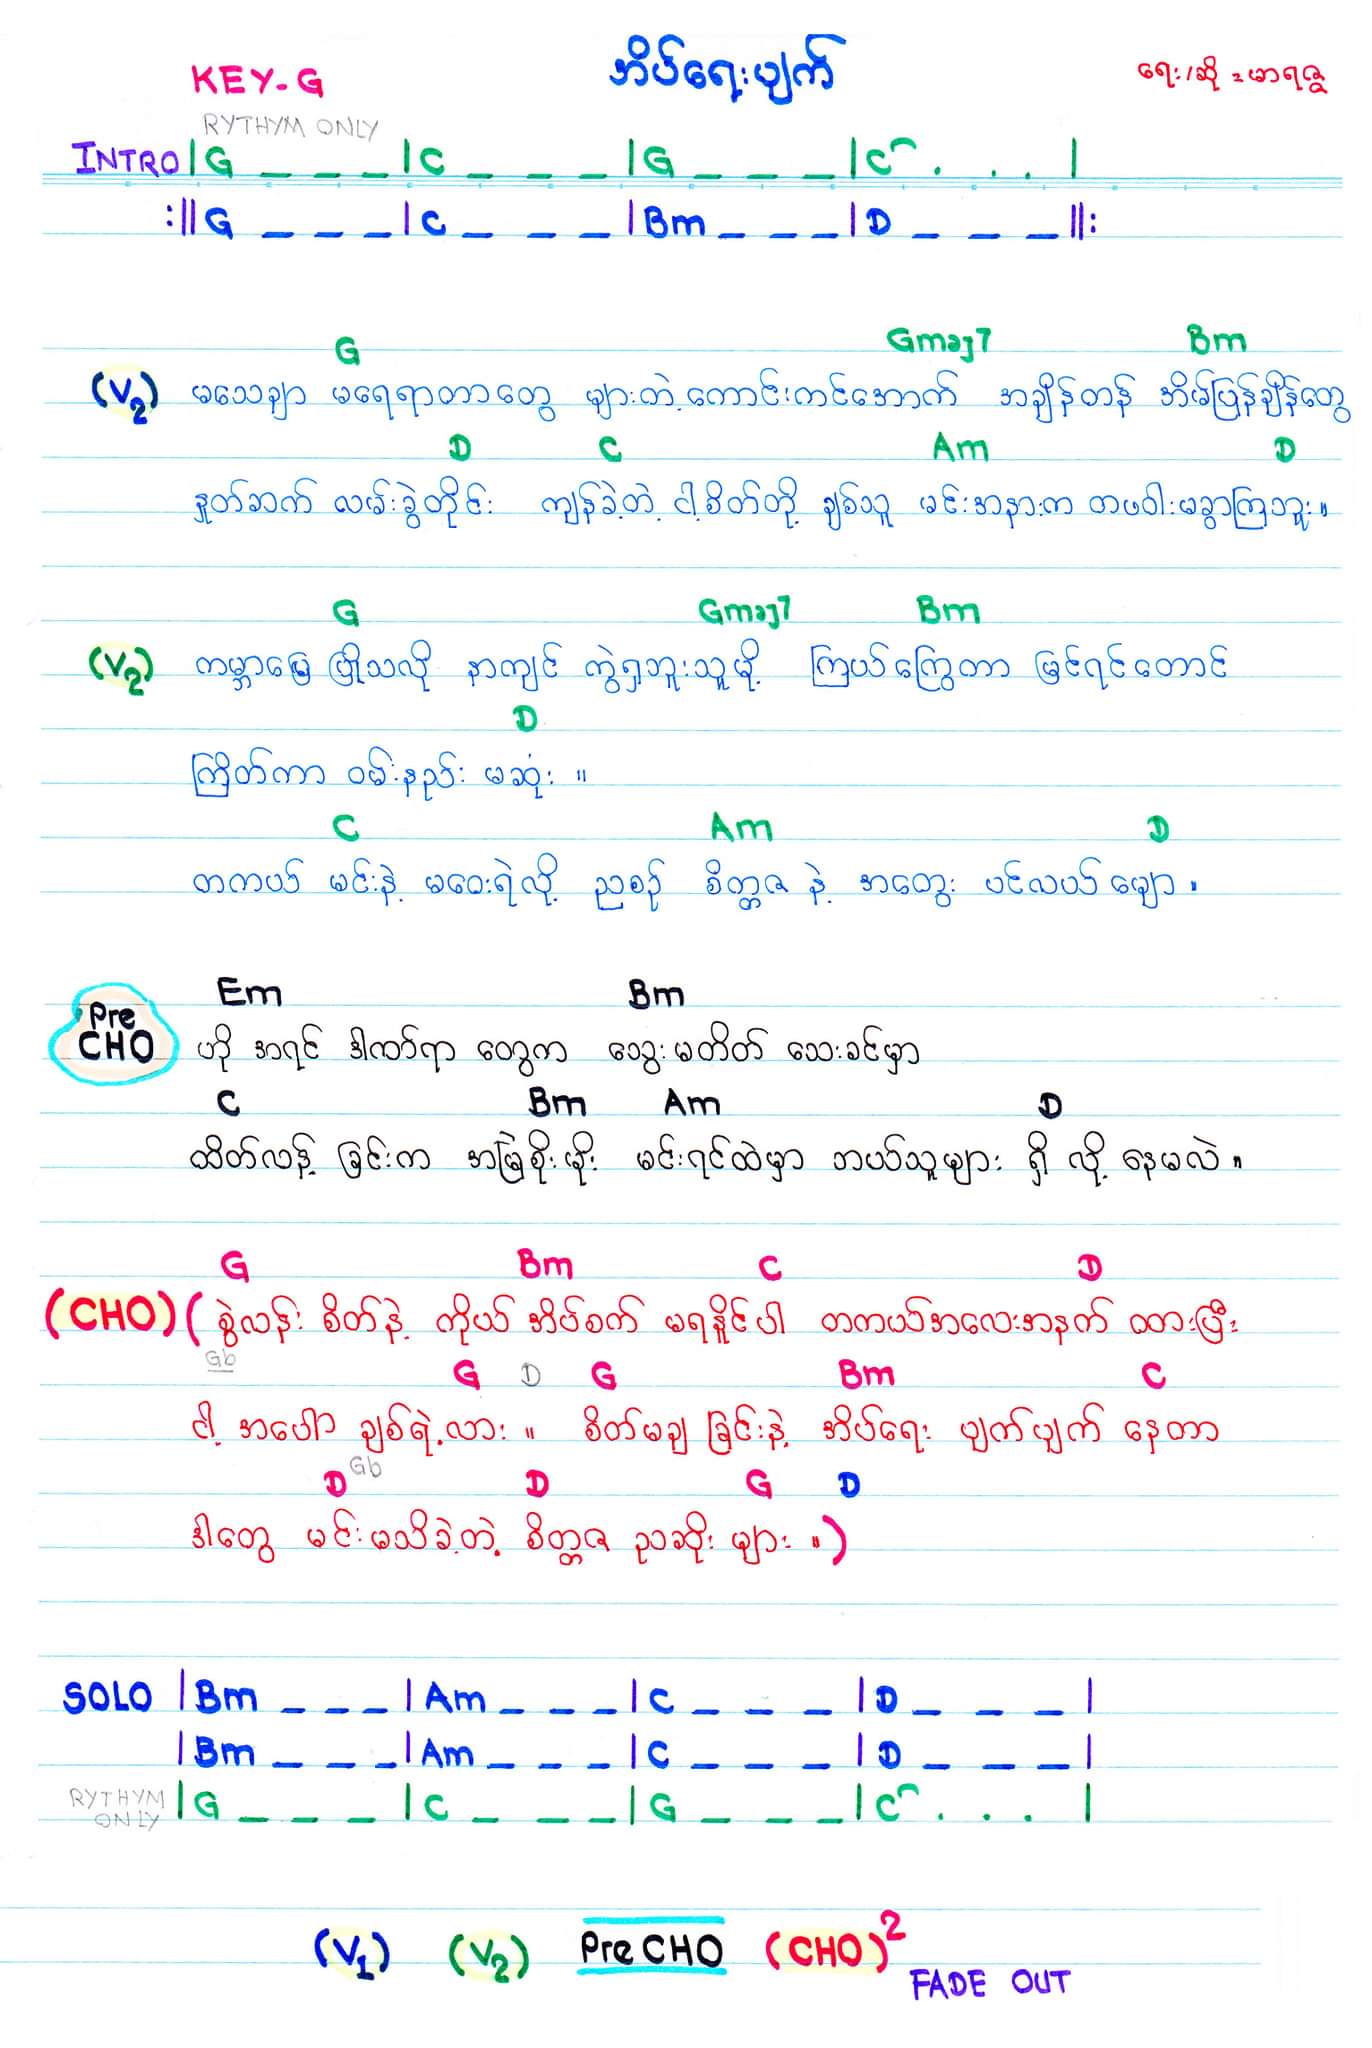 KEY-G အိပ်ရေးပျက် ရေး/ဆို = မာရဇ္ဇ
RYTHYM ONLY
INTRO |G _ _ _ |C _ _ _ |G _ _ _ |C . . . |
:||G _ _ _ |C _ _ _ |Bm _ _ _ |D _ _ _ ||:
G Gmaj7 Bm
(V2) မသေချာ မရေရာတာတွေ များတဲ့ကောင်းကင်အောက် အချိန်တန် အိမ်ပြန်ချိန်တွေ
D C Am D
နှုတ်ဆက် လမ်းခွဲတိုင်း ကျန်ခဲ့တဲ့ ငါ့စိတ်တို့ ချစ်သူ မင်းအနားက တဖဝါးမခွာကြဘူး။
G Gmaj7 Bm
(V2) ကမ္ဘာမြေ ပြိုသလို နာကျင် ကွဲရှဘူးသူမို့ ကြယ်ကြွေတာ မြင်ရင်တောင်
D
ကြိတ်ကာ ဝမ်းနည်း မဆုံး ။
C Am D
တကယ် မင်းနဲ့ မဝေးရဲလို့ ညစဉ် စိတ္တဇ နဲ့ အတွေး ပင်လယ် မျော ။
Pre CHO
Em Bm
ဟို အရင် ဒါဏ်ရာ တွေက သွေးမတိတ် သေးခင်မှာ
C Bm Am D
ထိတ်လန့် ခြင်းက အမြဲစိုးမိုး မင်းရင်ထဲမှာ ဘယ်သူများ ရှိ လို့ နေမလဲ ။
G Bm C D
(CHO) ( စွဲလန်း စိတ်နဲ့ ကိုယ် အိပ်စက် မရနိုင်ပါ တကယ်အလေးအနက် ထားပြီး
Gb G D G Bm C
ငါ့ အပေါ် ချစ်ရဲ့လား ။ စိတ်မချ ခြင်းနဲ့ အိပ်ရေး ပျက်ပျက် နေတာ
D Gb D G D
ဒါတွေ မင်းမသိခဲ့တဲ့ စိတ္တဇ ညဆိုး များ ။)
SOLO |Bm _ _ _ |Am _ _ _ |C _ _ _ |D _ _ _ |
|Bm _ _ _ |Am _ _ _ |C _ _ _ |D _ _ _ |
RYTHYM ONLY |G _ _ _ |C _ _ _ |G _ _ _ |C . . . |
(V1) (V2) Pre CHO (CHO)2
FADE OUT